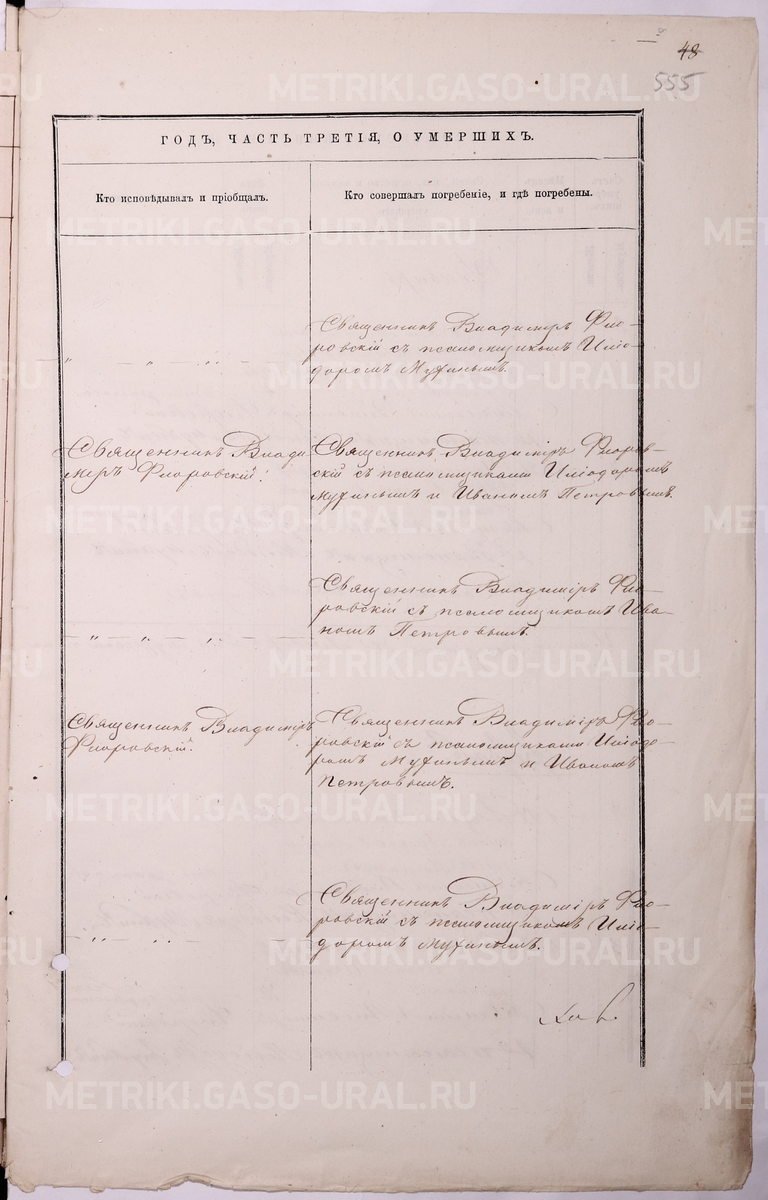 48
555
ГОДЪ, ЧАСТЬ ТРЕТІЯ, О УМЕРШИХЪ.
Кто исповѣдывалъ и пріобщалъ.
Кто совершалъ погребеніе, и гдѣ погребены.
Священникъ Владиміръ Фло-
ровскій съ псаломщикомъ Иліо-
доромъ Мухинымъ.
— „ — „ — „ —
Священникъ Влади
міръ Флоровскій.
Священникъ Владиміръ Флоров-
скій съ псаломщиками Иліодоромъ
Мухинымъ и Иваномъ Петровымъ.
Священникъ Владиміръ Фло-
ровскій съ псаломщикомъ Ива-
номъ Петровымъ.
— „ — „ — „ —
Священникъ Владиміръ
Флоровскій.
Священникъ Владиміръ Фло-
ровскій съ псаломщиками Иліодо-
ромъ Мухинымъ и Иваномъ
Петровымъ.
Священникъ Владиміръ Фло-
ровскій съ псаломщикомъ Иліо-
доромъ Мухинымъ.
— „ — „ — „ —
METRIKI.GASO-URAL.RU